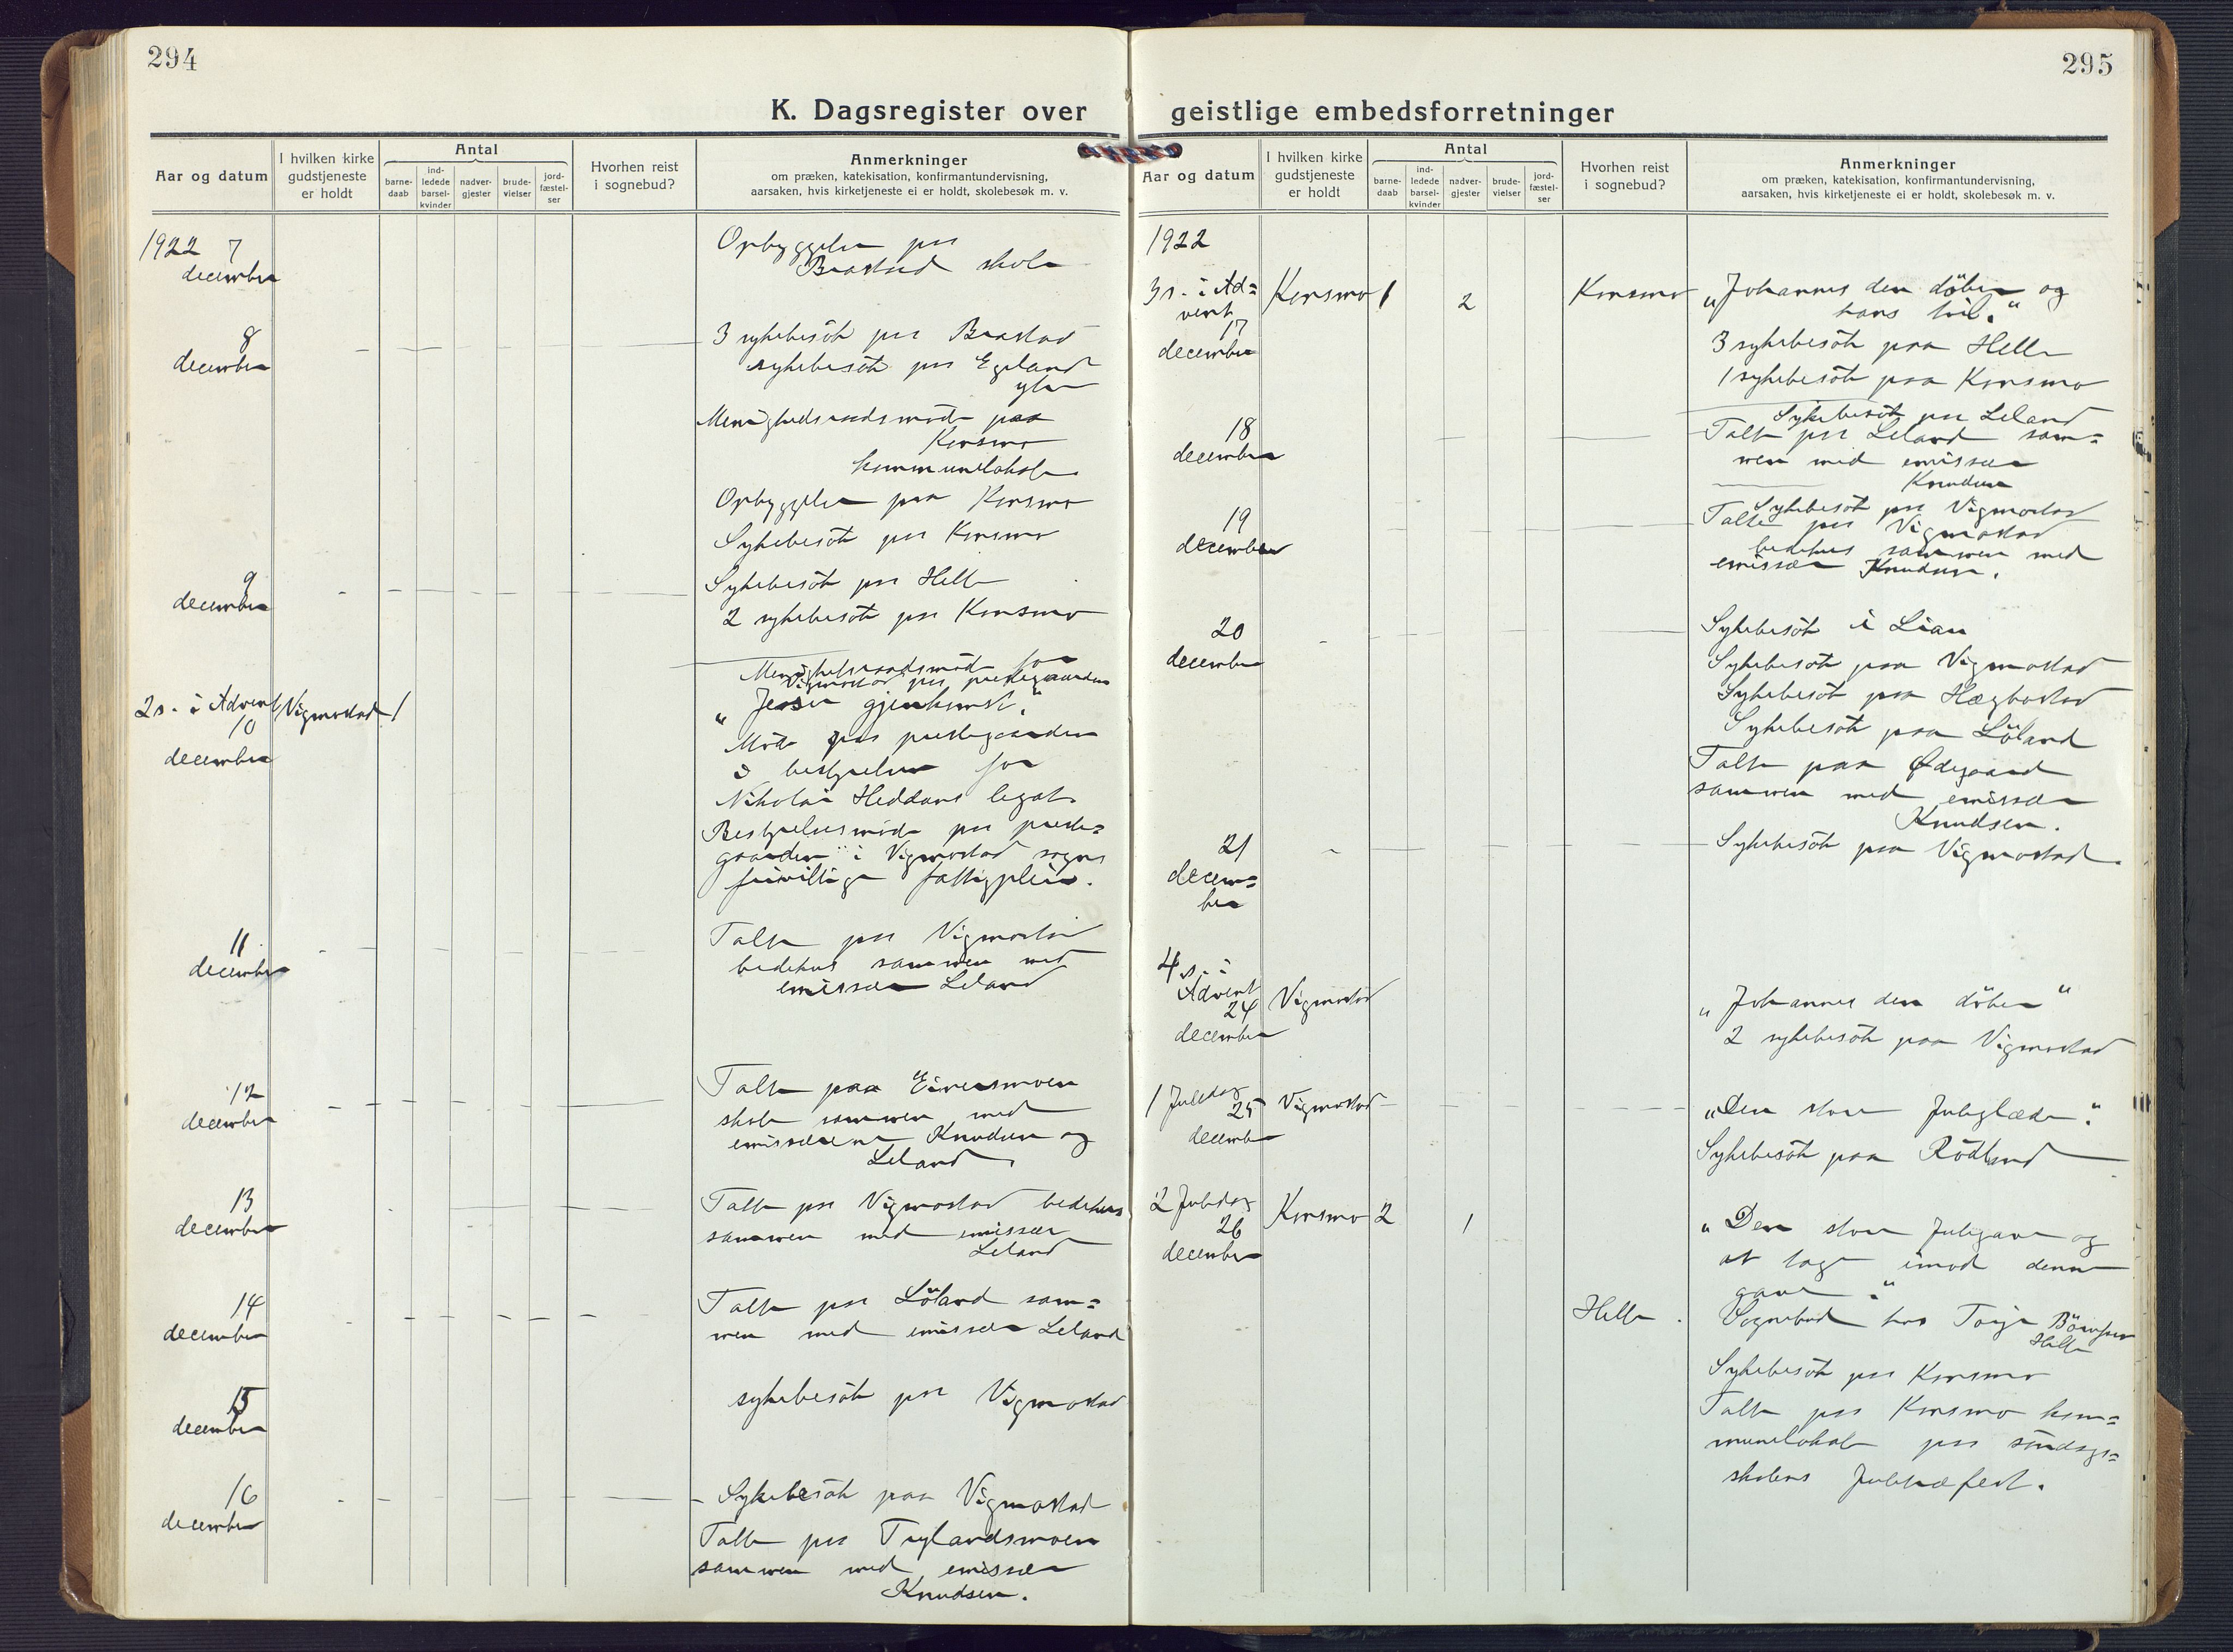 294
K. Dagsregister over
Aar og datum
I hvilken kirke
gudstjeneste
er holdt
Antal
barne-
daab
ind-
ledede
barsel-
kvinder
nadver-
gjester
brude-
vielser
jord-
fæstel-
ser
Hvorhen reist
i sognebud?
Anmerkninger
om præken, katekisation, konfirmantundervisning,
aarsaken, hvis kirketjeneste ei er holdt, skolebesøk m. v.
1922 7
december
Opbyggelse paa
skole
8
december
3 sykebesök paa
sykebesök paa Egeland
ytre
Menighedsraadsmöde paa
Konsmo
kommunelokale
Opbyggelse paa Konsmo
Sykebesök paa Konsmo
9
december
Sykebesök paa Helle
2 sykebesök paa Konsmo
Menighetsraadsmöde for
Vigmostad paa prestegaarden
2 s. i Advent
10
december
Vigmostad 1
„Jesu gjenkomst."
Möte paa prestegaarden
i bestyrelsen for
Nikolai Heddans legat
Bestyrelsesmöde paa preste=
gaarden i Vigmostad sogns
frivillige fattigpleie.
11
december
Talte paa Vigmostad
bedehus sammen med
emissær Leland
12
december
Talte paa Eivensmoen
skole sammen med
emissærerne Knudsen og
Leland.
13
december
Talte paa Vigmostad bedehus
sammen med emissær
Leland
14
december
Talte paa Löland sam=
men med emissær Leland
15
december
sykebesök paa Vigmostad
16
december
Sykebesök paa Vigmostad
Talte paa Trylandsmoen
sammen med emissær
Knudsen.
295
geistlige embedsforretninger
Aar og datum
I hvilken kirke
gudstjeneste
er holdt
Antal
barne-
daab
ind-
ledede
barsel-
kvinder
nadver-
gjester
brude-
vielser
jord-
fæstel-
ser
Hvorhen reist
i sognebud?
Anmerkninger
om præken, katekisation, konfirmantundervisning,
aarsaken, hvis kirketjeneste ei er holdt, skolebesøk m. v.
1922
3 s. i Ad=
vent
17
december
Konsmo 1 2 Konsmo
„Johannes den döber og
hans tvil."
3 sykebesök paa Helle
1 sykebesök paa Konsmo
18
december
Sykebesök paa Leland
Talte paa Leland sam=
men med emissær
Knudsen
19
december
Sykebesök paa Vigmostad
Talte paa Vigmostad
bedehus sammen med
emissær Knudsen.
20
december
Sykebesök i Lian
Sykebesök paa Vigmostad
Sykebesök paa Hægbostad
Sykebesök paa Löland
Talte paa Ødegaard
sammen med emissær
Knudsen.
21
decem=
ber
Sykebesök paa Vigmostad.
4 s. i
Advent
24
december
Vigmostad
„Johannes den döber"
2 sykebesök paa Vigmostad
1 Juledag
25
december
Vigmostad
„Den store Juleglæde."
Sykebesök paa Rödland
2 Juledag
26
december
Konsmo 2 1
„Den store Julegave og
at tage imod denne
gave."
Helle. Sognebud hos
Helle
Sykebesök paa Konsmo
Talte paa Konsmo kom=
munelokale paa söndags=
skolens Juletræfest.